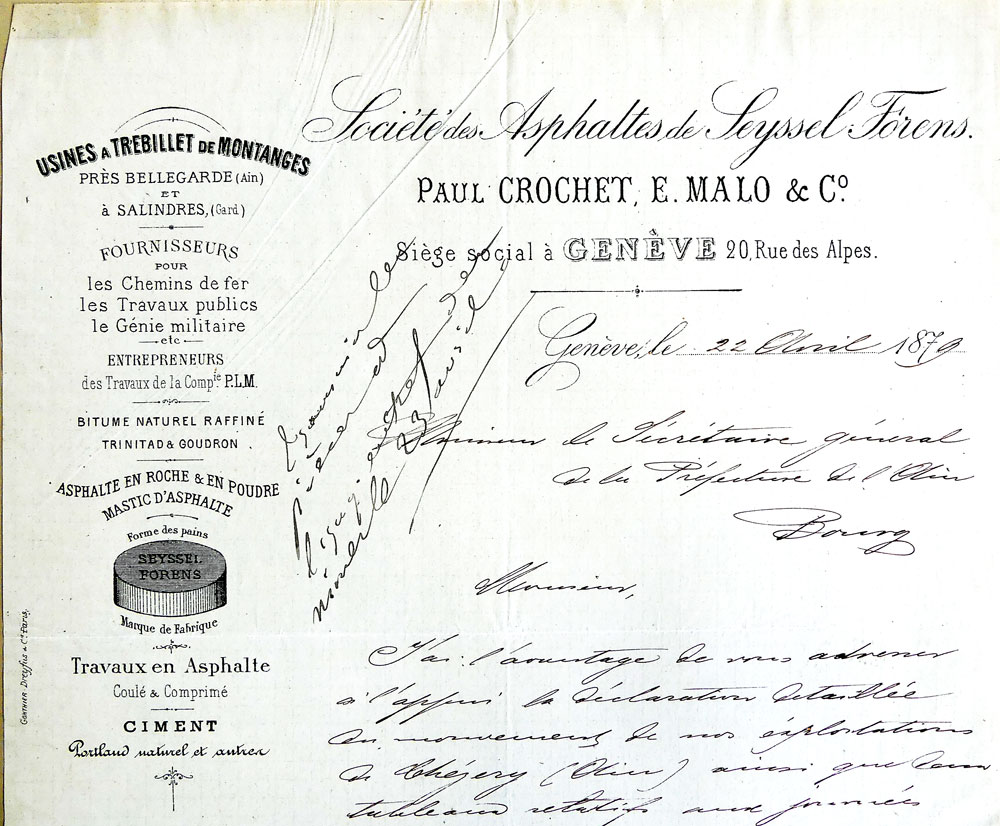 Société des Asphaltes de Seyssel Forens.
PAUL CROCHET, E. MALO & Cº.
Siège social à GENÈVE 20, Rue des Alpes.
USINES A TRÉBILLET DE MONTANGES
PRÈS BELLEGARDE (Ain)
ET
à SALINDRES, (Gard)
FOURNISSEURS
POUR
les Chemins de fer
les Travaux publics
le Génie militaire
etc
ENTREPRENEURS
des Travaux de la Compie P.L.M.
BITUME NATUREL RAFFINÉ
TRINITAD & GOUDRON
ASPHALTE EN ROCHE & EN POUDRE
MASTIC D'ASPHALTE
Forme des pains
SEYSSEL
FORENS
Marque de Fabrique
Travaux en Asphalte
Coulé & Comprimé
CIMENT
Portland naturel et autres
GONTHIER Dreyfus & Cie Paris.
23 avril
Genève, le 22 Avril 1879
Monsieur le Sécrétaire général
de la Préfecture de l'Ain
Bourg
Monsieur,
J'ai l'avantage de vous adresser
à l'appui la déclaration détaillée
du mouvement de nos exploitations
de Chézery (Ain) ainsi que deux
tableaux relatifs aux journées